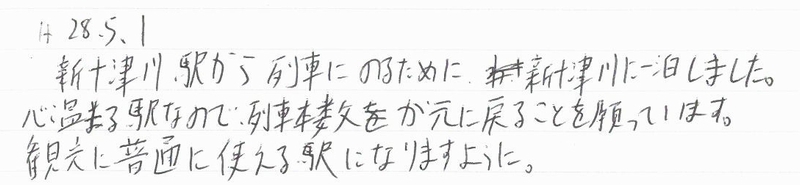 H 28.5.1
新十津川駅から列車にのるために、新十津川に一泊しました。
心温まる駅なので、列車本数をが元に戻ることを願っています。
観光に普通に使える駅になりますように。